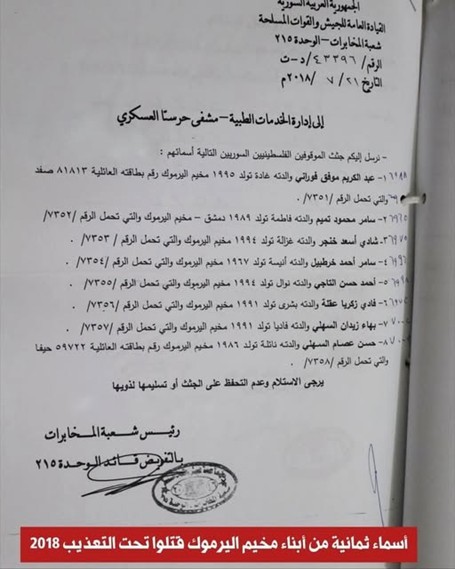 الجمهورية العربية السورية
القيادة العامة للجيش والقوات المسلحة
شعبة المخابرات – الوحدة ٢١٥
الرقم / ٤٣٣٩٦ / د – ت
التاريخ ٢١/ ٧ /٢٠١٨م
إلى إدارة الخدمات الطبية – مشفى حرستا العسكري
- نرسل إليكم جثث الموقوفين الفلسطينيين السوريين التالية أسمائهم :
١- عبد الكريم موفق فوراني والدته غادة تولد ١٩٩٥ مخيم اليرموك رقم بطاقته العائلية ٨١٨١٣ صفد
والتي تحمل الرقم /٧٣٥١/ .
٢- سامر محمود تميم والدته فاطمة تولد ١٩٨٩ دمشق – مخيم اليرموك والتي تحمل الرقم /٧٣٥٢/ .
٣- شادي أسعد خنجر والدته غزالة تولد ١٩٩٤ مخيم اليرموك والتي تحمل الرقم /٧٣٥٣/ .
٤- سامر أحمد خرطبيل والدته أنيسة تولد ١٩٦٧ مخيم اليرموك والتي تحمل الرقم /٧٣٥٤/ .
٥- أحمد حسن التاجي والدته نوال تولد ١٩٩٤ مخيم اليرموك والتي تحمل الرقم /٧٣٥٥/ .
٦- فادي زكريا عقلة والدته بشرى تولد ١٩٩١ مخيم اليرموك والتي تحمل الرقم /٧٣٥٦/ .
٧- بهاء زيدان السهلي والدته فاديا تولد ١٩٩١ مخيم اليرموك والتي تحمل الرقم /٧٣٥٧/ .
٨- حسن عصام السهلي والدته نائلة تولد ١٩٨٦ مخيم اليرموك رقم بطاقته العائلية ٥٩٧٢٢ حيفا
والتي تحمل الرقم /٧٣٥٨/ .
يرجى الاستلام وعدم التحفظ على الجثث أو تسليمها لذويها
رئيس شعبة المخابرات
بالتفويض قائد الوحدة ٢١٥
أسماء ثمانية من أبناء مخيم اليرموك قتلوا تحت التعذيب 2018